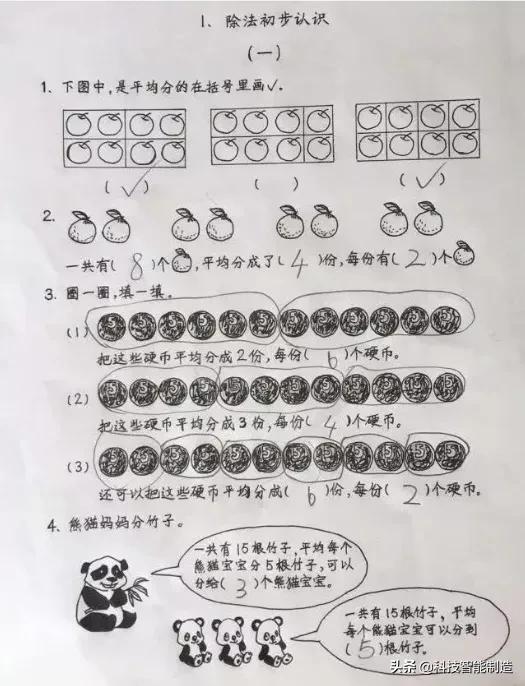 1、除法初步认识
(一)
1、下图中，是平均分的在括号里画✓。
(✓) ( ) (✓)
2、
一共有(8)个，平均分成了(4)份，每份有(2)个
3、圈一圈，填一填。
(1) 5 5 5 5 5 5 5 5 5 5 5 5
把这些硬币平均分成2份，每份(6)个硬币。
(2) 5 5 5 5 5 5 5 5 5 5 5 5
把这些硬币平均分成3份，每份(4)个硬币。
(3) 5 5 5 5 5 5 5 5 5 5 5 5
还可以把这些硬币平均分成(6)份，每份(2)个硬币。
4、熊猫妈妈分竹子。
一共有15根竹子，平均每个
熊猫宝宝分5根竹子，可以
分给(3)个熊猫宝宝。
一共有15根竹子，平均
每个熊猫宝宝可以分到
(5)根竹子。
头条@科技智能制造